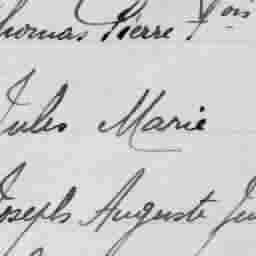 Thomas Pierre Fois
Jules Marie
Joseph Auguste